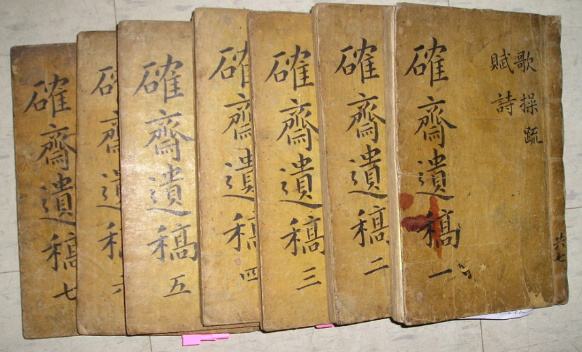 共七
歌操疏
賦詩
確齋遺稿一
確齋遺稿二
確齋遺稿三
確齋遺稿四
確齋遺稿五
確齋遺稿六
確齋遺稿七